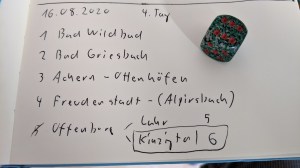 16.08.2020 4. Tag
1 Bad Wildbad
2 Bad Griesbach
3 Achern - Ottenhöfen
4 Freudenstadt - (Alpirsbach)
Lahr 5
5 Offenburg
Kinzigtal 6